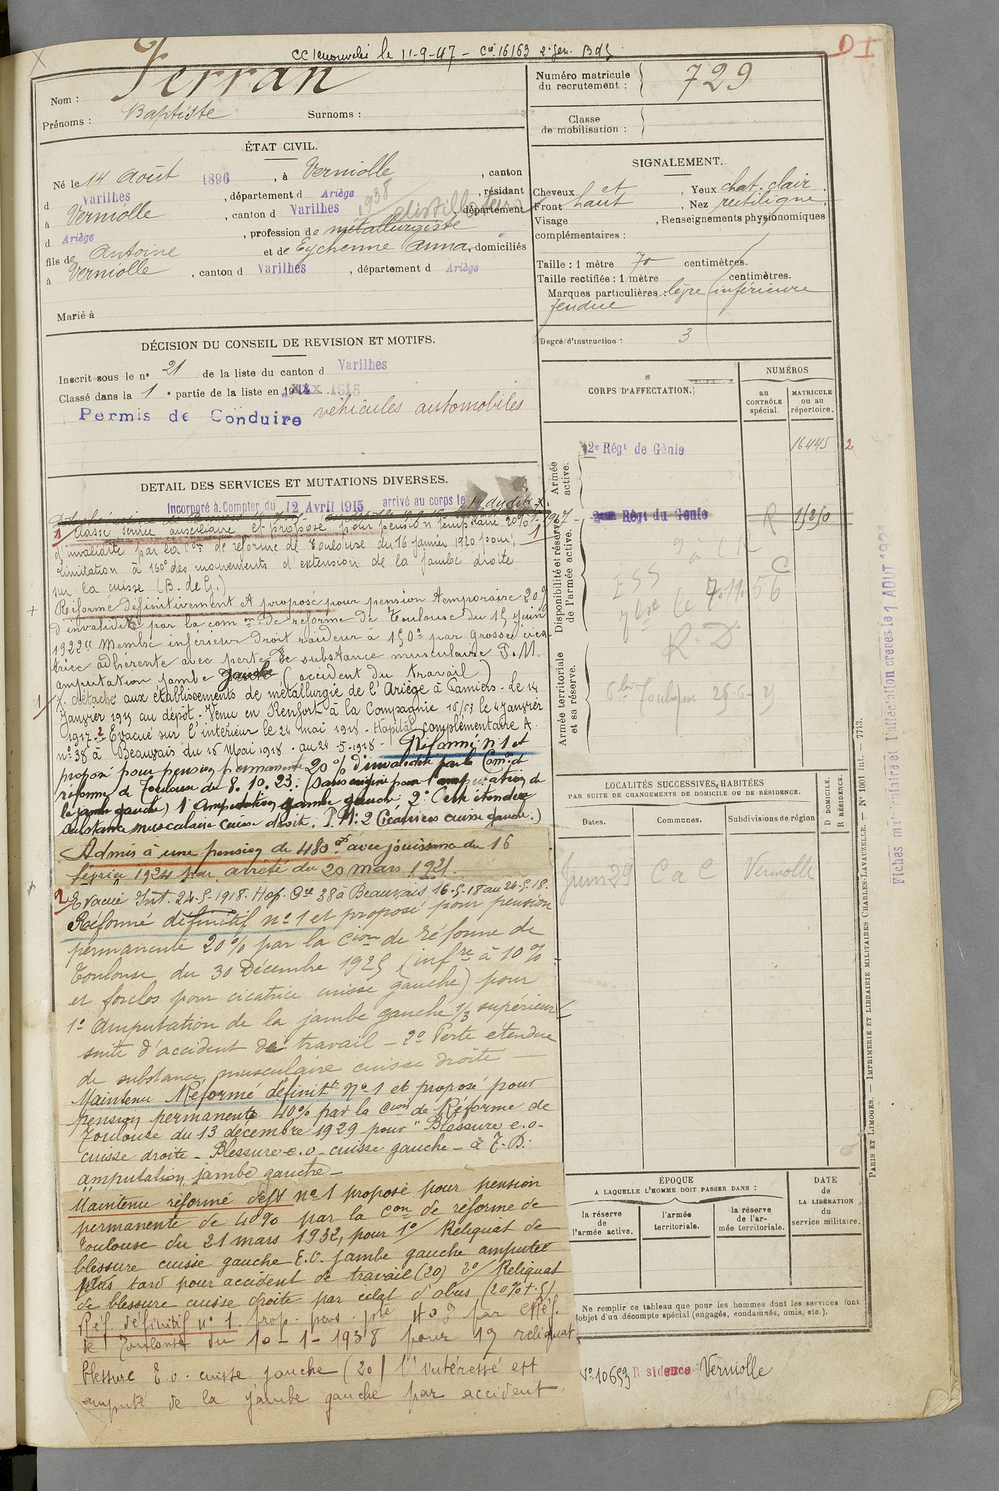 CC renouvelée le 11-9-47 - Cie 16163 2e Gen. Bd5
DI
Nom : Ferran
Prénoms : Baptiste Surnoms :
Numéro matricule
du recrutement : 729
Classe
de mobilisation :
ÉTAT CIVIL.
Né le 14 Août 1896, à Verniolle, canton
d Varilhes, département d Ariège, résidant
à Verniolle, canton d Varilhes, département
d Ariège, profession de métallurgiste distillateur 1938
fils de Antoine et de Eychenne Anna, domiciliés
à Verniolle, canton d Varilhes, département d Ariège
Marié à
SIGNALEMENT.
Cheveux et , Yeux chat. clair
Front haut , Nez rectiligne
Visage , Renseignements physionomiques
complémentaires :
Taille : 1 mètre 70 centimètres.
Taille rectifiée : 1 mètre centimètres.
Marques particulières : lèpre inférieure
fendue
Degré d'instruction : 3
DÉCISION DU CONSEIL DE REVISION ET MOTIFS.
Inscrit sous le no 21 de la liste du canton d Varilhes
Classé dans la 1e partie de la liste en 1915
Permis de Conduire véhicules automobiles
CORPS D'AFFECTATION.
NUMÉROS
au
CONTRÔLE
spécial.
MATRICULE
ou au
répertoire.
Armée
active.
2e Régt de Génie 16445 2
Disponibilité et réserve
de l'armée active.
2me Régt du Génie R
7.11.56
R.D.
Armée territoriale
et sa réserve.
Toulouse
DETAIL DES SERVICES ET MUTATIONS DIVERSES.
Incorporé à Compter du 12 Avril 1915 arrivé au corps le 14 du dit
Classé service auxiliaire et proposé pour pension temporaire 20%
d'invalidité par la Con de réforme de Toulouse du 16 janvier 1920 pour
limitation à 160° des mouvements d'extension de la jambe droite
sur la cuisse (B. de G.)
Réformé définitivement et proposé pour pension temporaire 20%
d'invalidité par la comon de réforme de Toulouse du 15 juin
1922 Membre inférieur droit raideur à 150° par grosse cica
trice adhérente avec perte de substance musculaire P.M.
amputation jambe gauche (accident du travail)
1 détaché aux établissements de métallurgie de l'Ariège à Pamiers. Le 14
Janvier 1917 au dépôt. Venu en Renfort à la Compagnie 16/53 le 4 Janvier
1917. 2 Evacué sur l'intérieur le 24 mai 1918. Hopital Complémentaire A
no 38 à Beauvais du 16 Mai 1918. au 24-5-1918. Réformé no 1 et
proposé pour pension permanente 20% d'invalidité par la Comon de
réforme de Toulouse du 8.10.23. (sans origine pour l'amputation de
la jambe gauche) 1° Amputation jambe gauche 2° Perte étendue
substance musculaire cuisse droite. P.M: 2 Cicatrices cuisse gauche.)
Admis à une pension de 480 f avec jouissance du 16
février 1924 par arrêté du 20 mars 1925.
2 Evacué Int. 24-5-1918. Hop. Cre 38 à Beauvais 16-5-18 au 24-5-18.
Réformé définitif no 1 et proposé pour pension
permanente 20% par la Cion de réforme de
Toulouse du 30 Décembre 1925 (infre à 10%
et forclos pour cicatrice cuisse gauche) pour
1° Amputation de la jambe gauche 1/3 supérieur
suite d'accident de travail - 2° Perte étendue
de substance musculaire cuisse droite
Maintenu Réformé définitt No 1 et proposé pour
pension permanente 40% par la Cion de Réforme de
Toulouse du 13 décembre 1929 pour "Blessure e.o-
cuisse droite - Blessure e.o - cuisse gauche - à T.D:
amputation jambe gauche -
Maintenu réformé déff no 1 proposé pour pension
permanente de 40% par la Con de réforme de
Toulouse du 21 mars 1932, pour 1°/ Reliquat de
blessure cuisse gauche E.O. jambe gauche amputée
plus tard pour accident de travail (20) 2°/ Reliquat
de blessure cuisse droite par eclat d'obus (20%+5)
Réf. définitif no 1 prop. pens. pte 40%
de Toulouse du 10-1-1938 pour 1° reliquat
blessure E.o. cuisse gauche (20) l'intéressé est
amputé de la jambe gauche par accident
LOCALITÉS SUCCESSIVES HABITÉES
PAR SUITE DE CHANGEMENTS DE DOMICILE OU DE RÉSIDENCE.
Dates. Communes. Subdivisions de région
D DOMICILE.
R RÉSIDENCE.
Juin 29 C a C Verniolle
ÉPOQUE
A LAQUELLE L'HOMME DOIT PASSER DANS :
la réserve
de
l'armée active.
l'armée
territoriale.
la réserve
de l'ar-
mée territoriale.
DATE
de
LA LIBÉRATION
du
service militaire.
Ne remplir ce tableau que pour les hommes dont les services font
l'objet d'un décompte spécial (engagés, condamnés, omis, etc.).
No 10653 Résidence Verniolle
PARIS ET LIMOGES. — IMPRIMERIE ET LIBRAIRIE MILITAIRES CHARLES-LAVAUZELLE. — No 1006t int. — 7713.